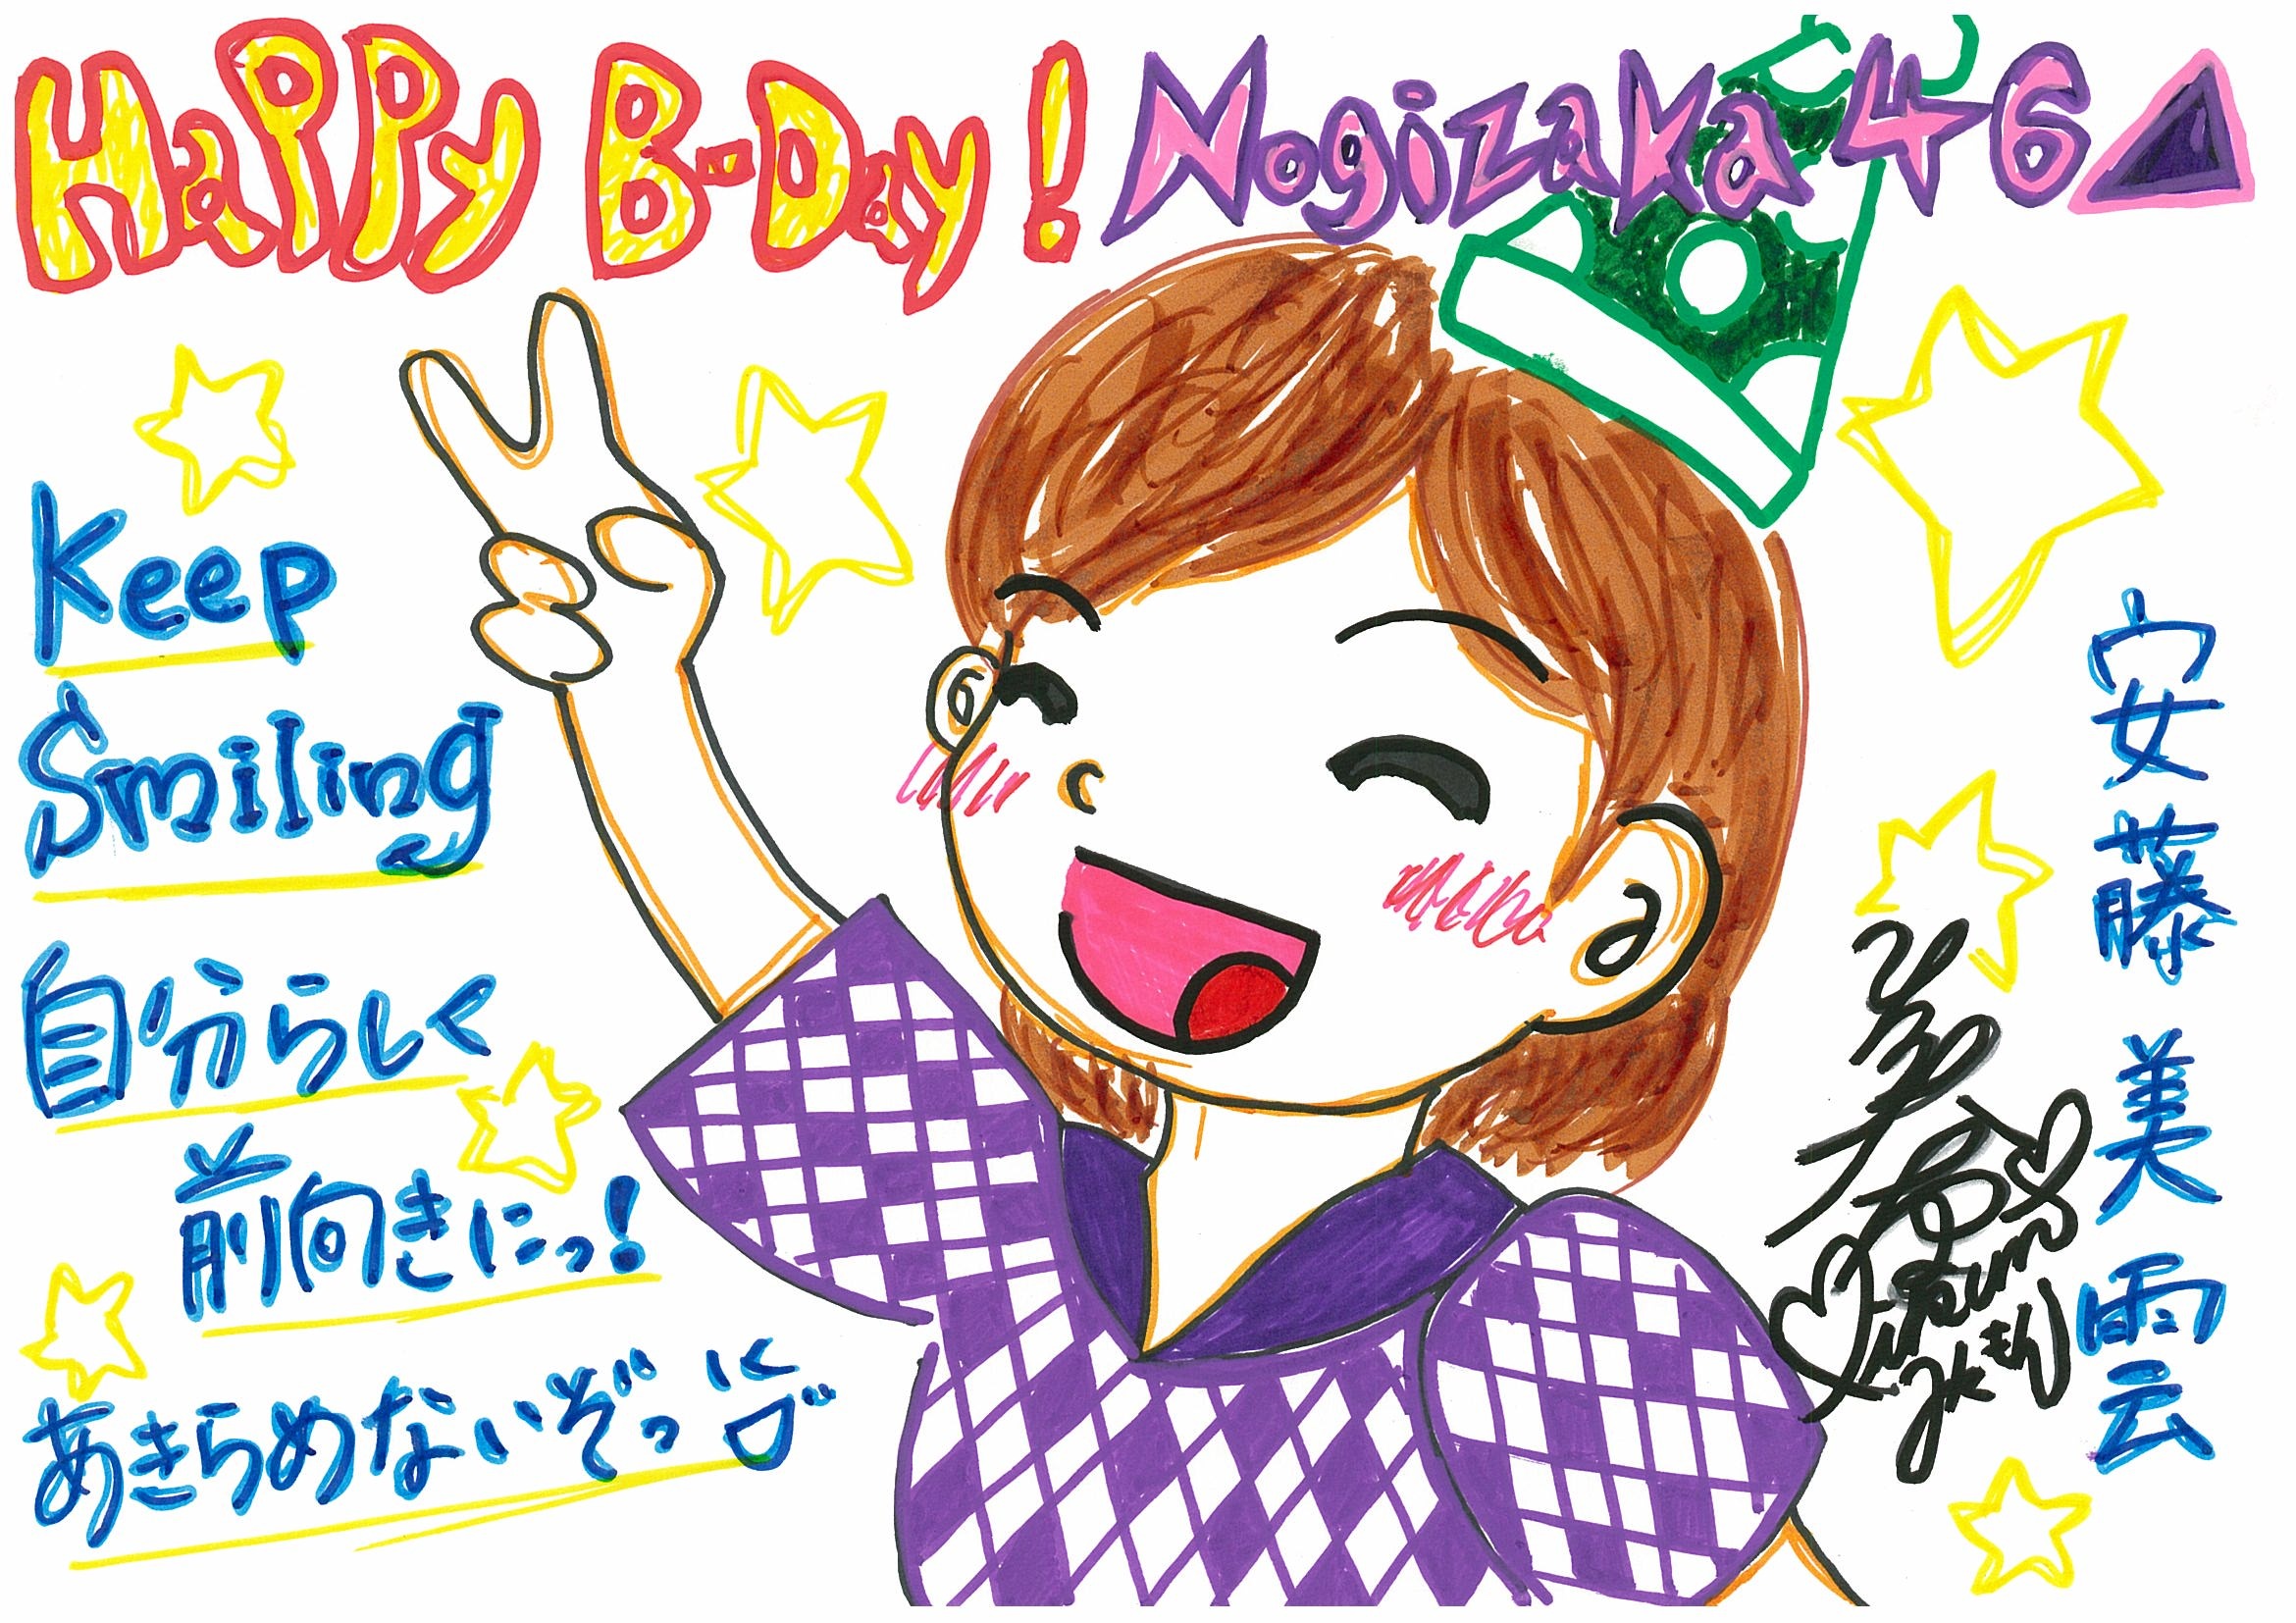 Happy B-Day! Nogizaka 46
Keep
Smiling
自分らしく
前向きにっ!
あきらめないぞっ
安藤 美雲